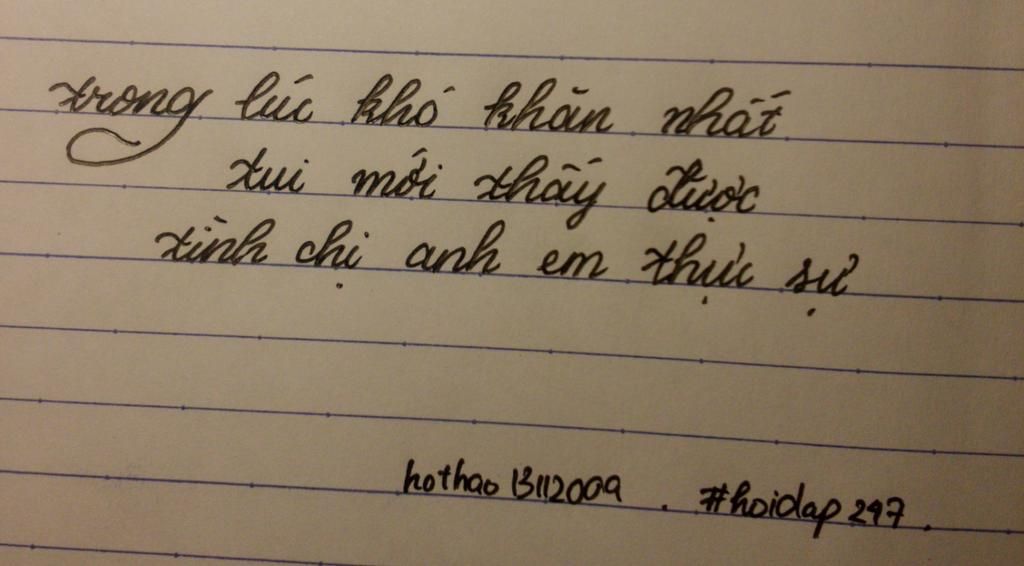 trong lúc khó khăn nhất
tui mới thấy được
tình chị anh em thực sự
hothao 13112009 . #hoidap 247 .